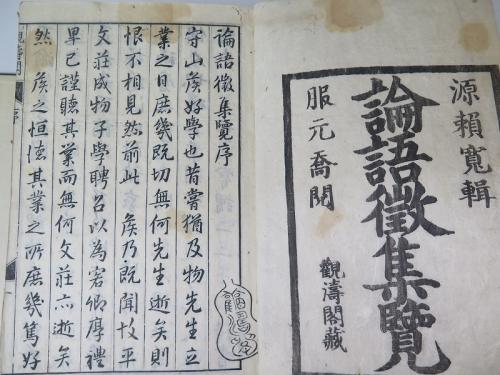 源頼寬輯
論語徵集覽
服元喬閱
觀濤閣藏
論語徵集覽序
守山侯好學也昔嘗猶及物先生立
業之日庶幾既切無何先生逝矣則
恨不相見然前此侯乃既聞故平
文莊成物子學聘召以為賓師厚禮
畢已謹聽其業而無何文莊亦逝矣
然侯之恒德其業之所庶幾篤好
序